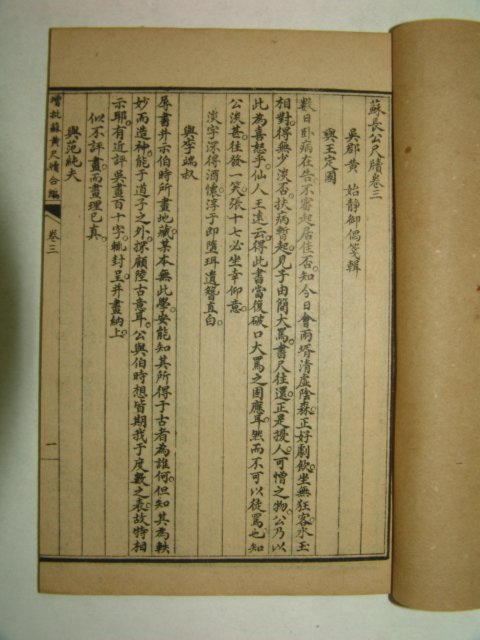 蘇長公尺牘卷三
吳郡黃 始靜御偶箋輯
與王定國
數日卧病在告不審起居佳否知今日會兩壻清虛陰森正好劇飲坐無狂客水玉
相對得無少淡否扶病暫起見子由簡大罵書尺往還正是擾人可憎之物公乃以
此為喜怒乎仙人王遠云得此書當復破口大罵之固應耳然而不可以徒罵也知
公淡甚往發一笑張十七必坐幸仰意
淡字深得酒懷淳于即墮珥遺簪直白
與李端叔
辱書并示伯時所畫地藏某本無此學安能知其所得于古者為誰何但知其為軼
妙而造神能于道子之外探顧陸古意耳公與伯時想皆期我于度數之表故特相
示耶有近評吳畫百十字輒封呈并畫納上
似不評畫而畫理已真
與范純夫
增批蘇黃尺牘合編
卷三
一